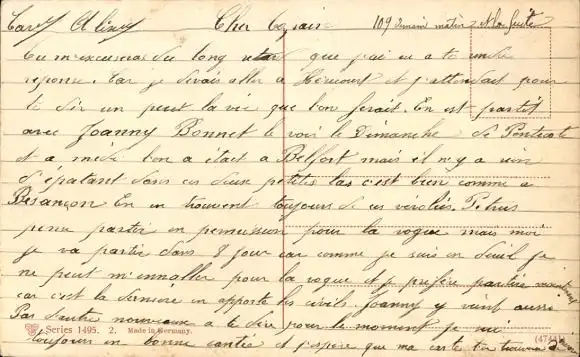 Cher Copain
Tu m'excusera du long retard que j'ai eu a te
reponse. Car je devais aller a Héricourt et j'attendait pour
te dir un peut la vie que l'on ferait. En est partit
avec Joanny Bonnet le voir le Dimanche de Pentecote
et a midi l'on a était a Belfort mais il n'y a rien
d'épatant dans ces deux petites la c'est bien comme a
Besançon En en trouvent toujours de ces vérolés. Petrus
pense partir en permission pour la vogue mais moi
je va partir dans 8 jour car comme je suis en deuil je
ne peut m'ennaller pour la vogue et je prefère partire
car c'est la dernière en apporte les civils. Joanny y vient aussi
Pas d'autre nouveaux a te dire pour le moment je suis
Series 1495. 2. Made in Germany.
toujours en bonne santé et j'espère que ma carte t'en trouvera de